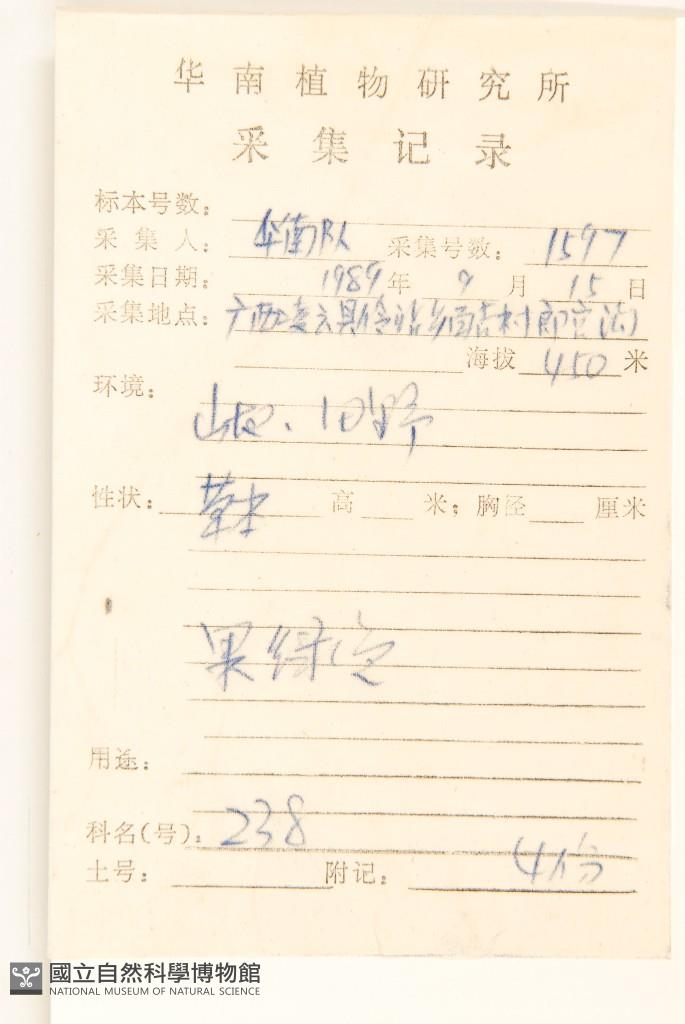 华南植物研究所
采集记录
标本号数：
采集人： 华南队 采集号数： 1597
采集日期： 1989年 9月 15日
采集地点： 广西凌云县 村郎
海拔 450 米
环境：
山坡、田野
性状： 草本 高 米；胸径 厘米
果绿色
用途：
科名(号)： 238
土号： 附记： 4份
國立自然科學博物館
NATIONAL MUSEUM OF NATURAL SCIENCE